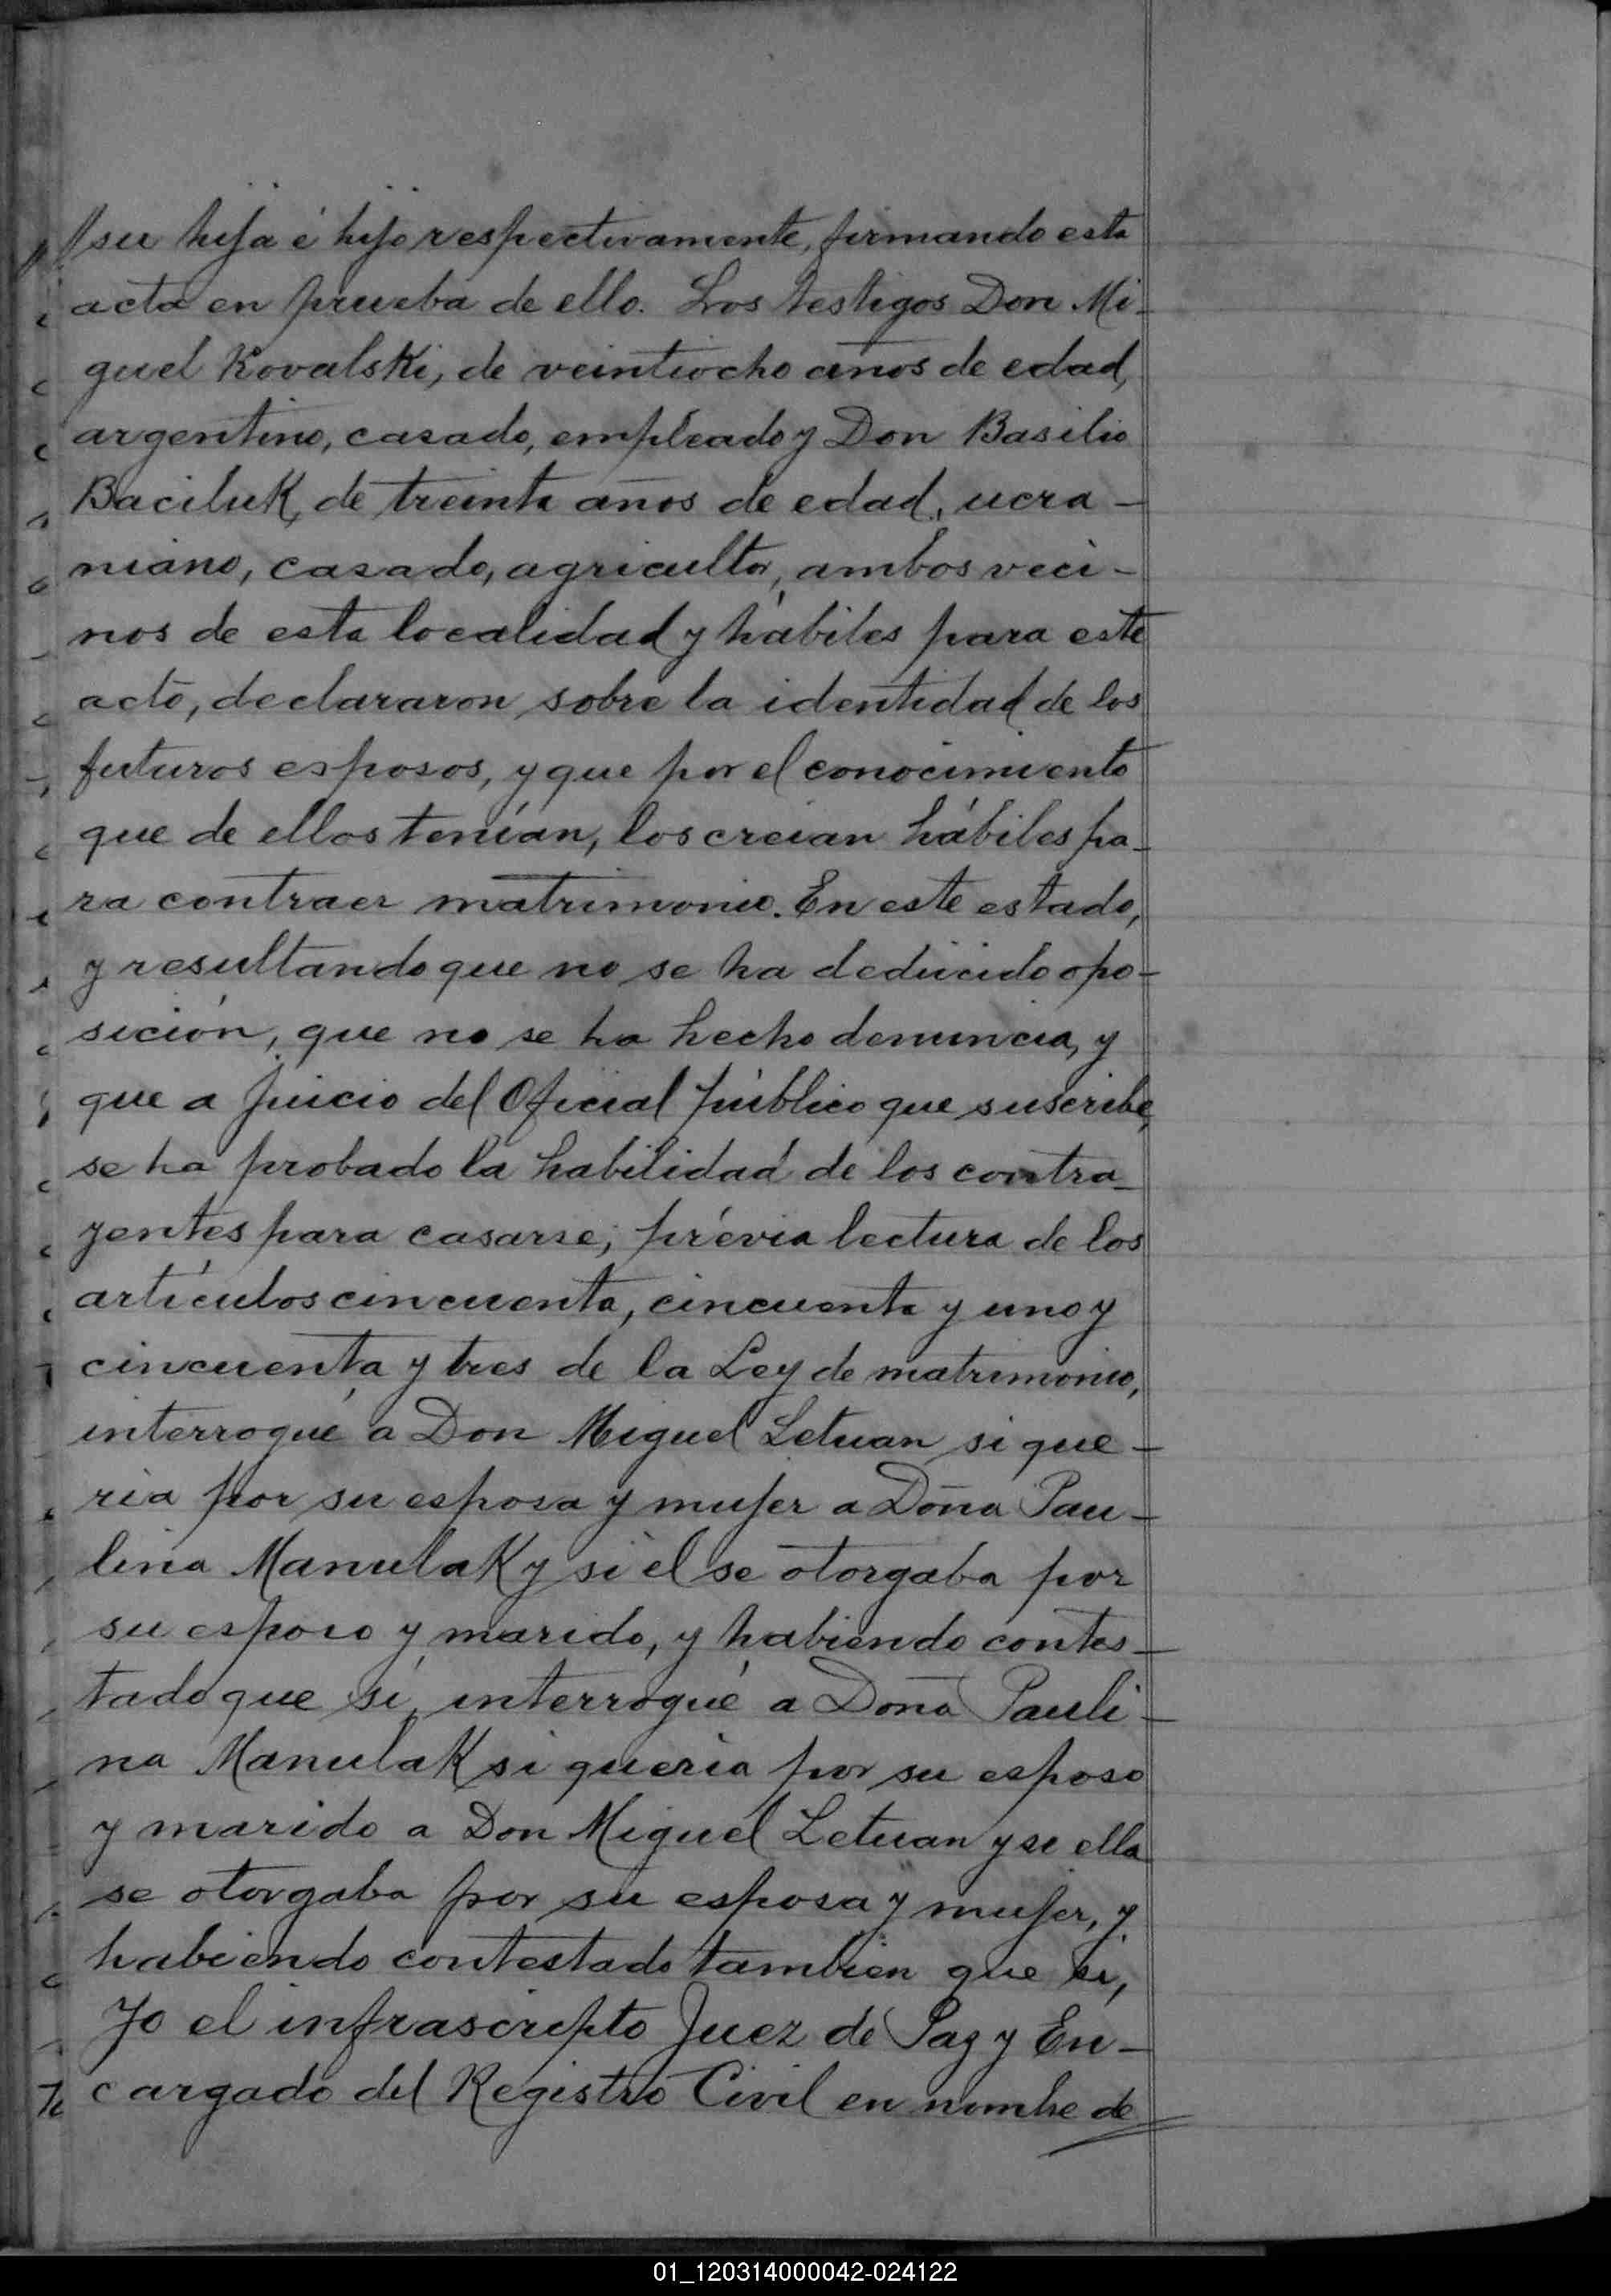 //su hija é hijo respectivamente, firmando esta
acta en prueba de ello. Los testigos Don Mi-
guel Kovalski, de veintiocho años de edad,
argentino, casado, empleado y Don Basilio
Baciluk, de treinta años de edad, ucra-
niano, casado, agricultor, ambos veci-
nos de esta localidad y hábiles para este
acto, declararon sobre la identidad de los
futuros esposos, y que por el conocimiento
que de ellos tenían, los creian hábiles pa-
ra contraer matrimonio. En este estado,
y resultando que no se ha deducido opo-
sición, que no se ha hecho denuncia, y
que a juicio del Oficial público que suscribe,
se ha probado la habilidad de los contra-
yentes para casarse; prévia lectura de los
artículos cincuenta, cincuenta y uno y
cincuenta y tres de la Ley de matrimonio,
interrogué a Don Miguel Letuan si que-
ria por su esposa y mujer a Doña Pau-
lina Manulak y si el se otorgaba por
su esposo y marido, y habiendo contes-
tado que sí, interrogué a Doña Pauli-
na Manulak si queria por su esposo
y marido a Don Miguel Letuan y si ella
se otorgaba por su esposa y mujer, y
habiendo contestado tambien que si,
Yo el infrascripto Juez de Paz y En-
cargado del Registro Civil en nombre de
01_120314000042-024122